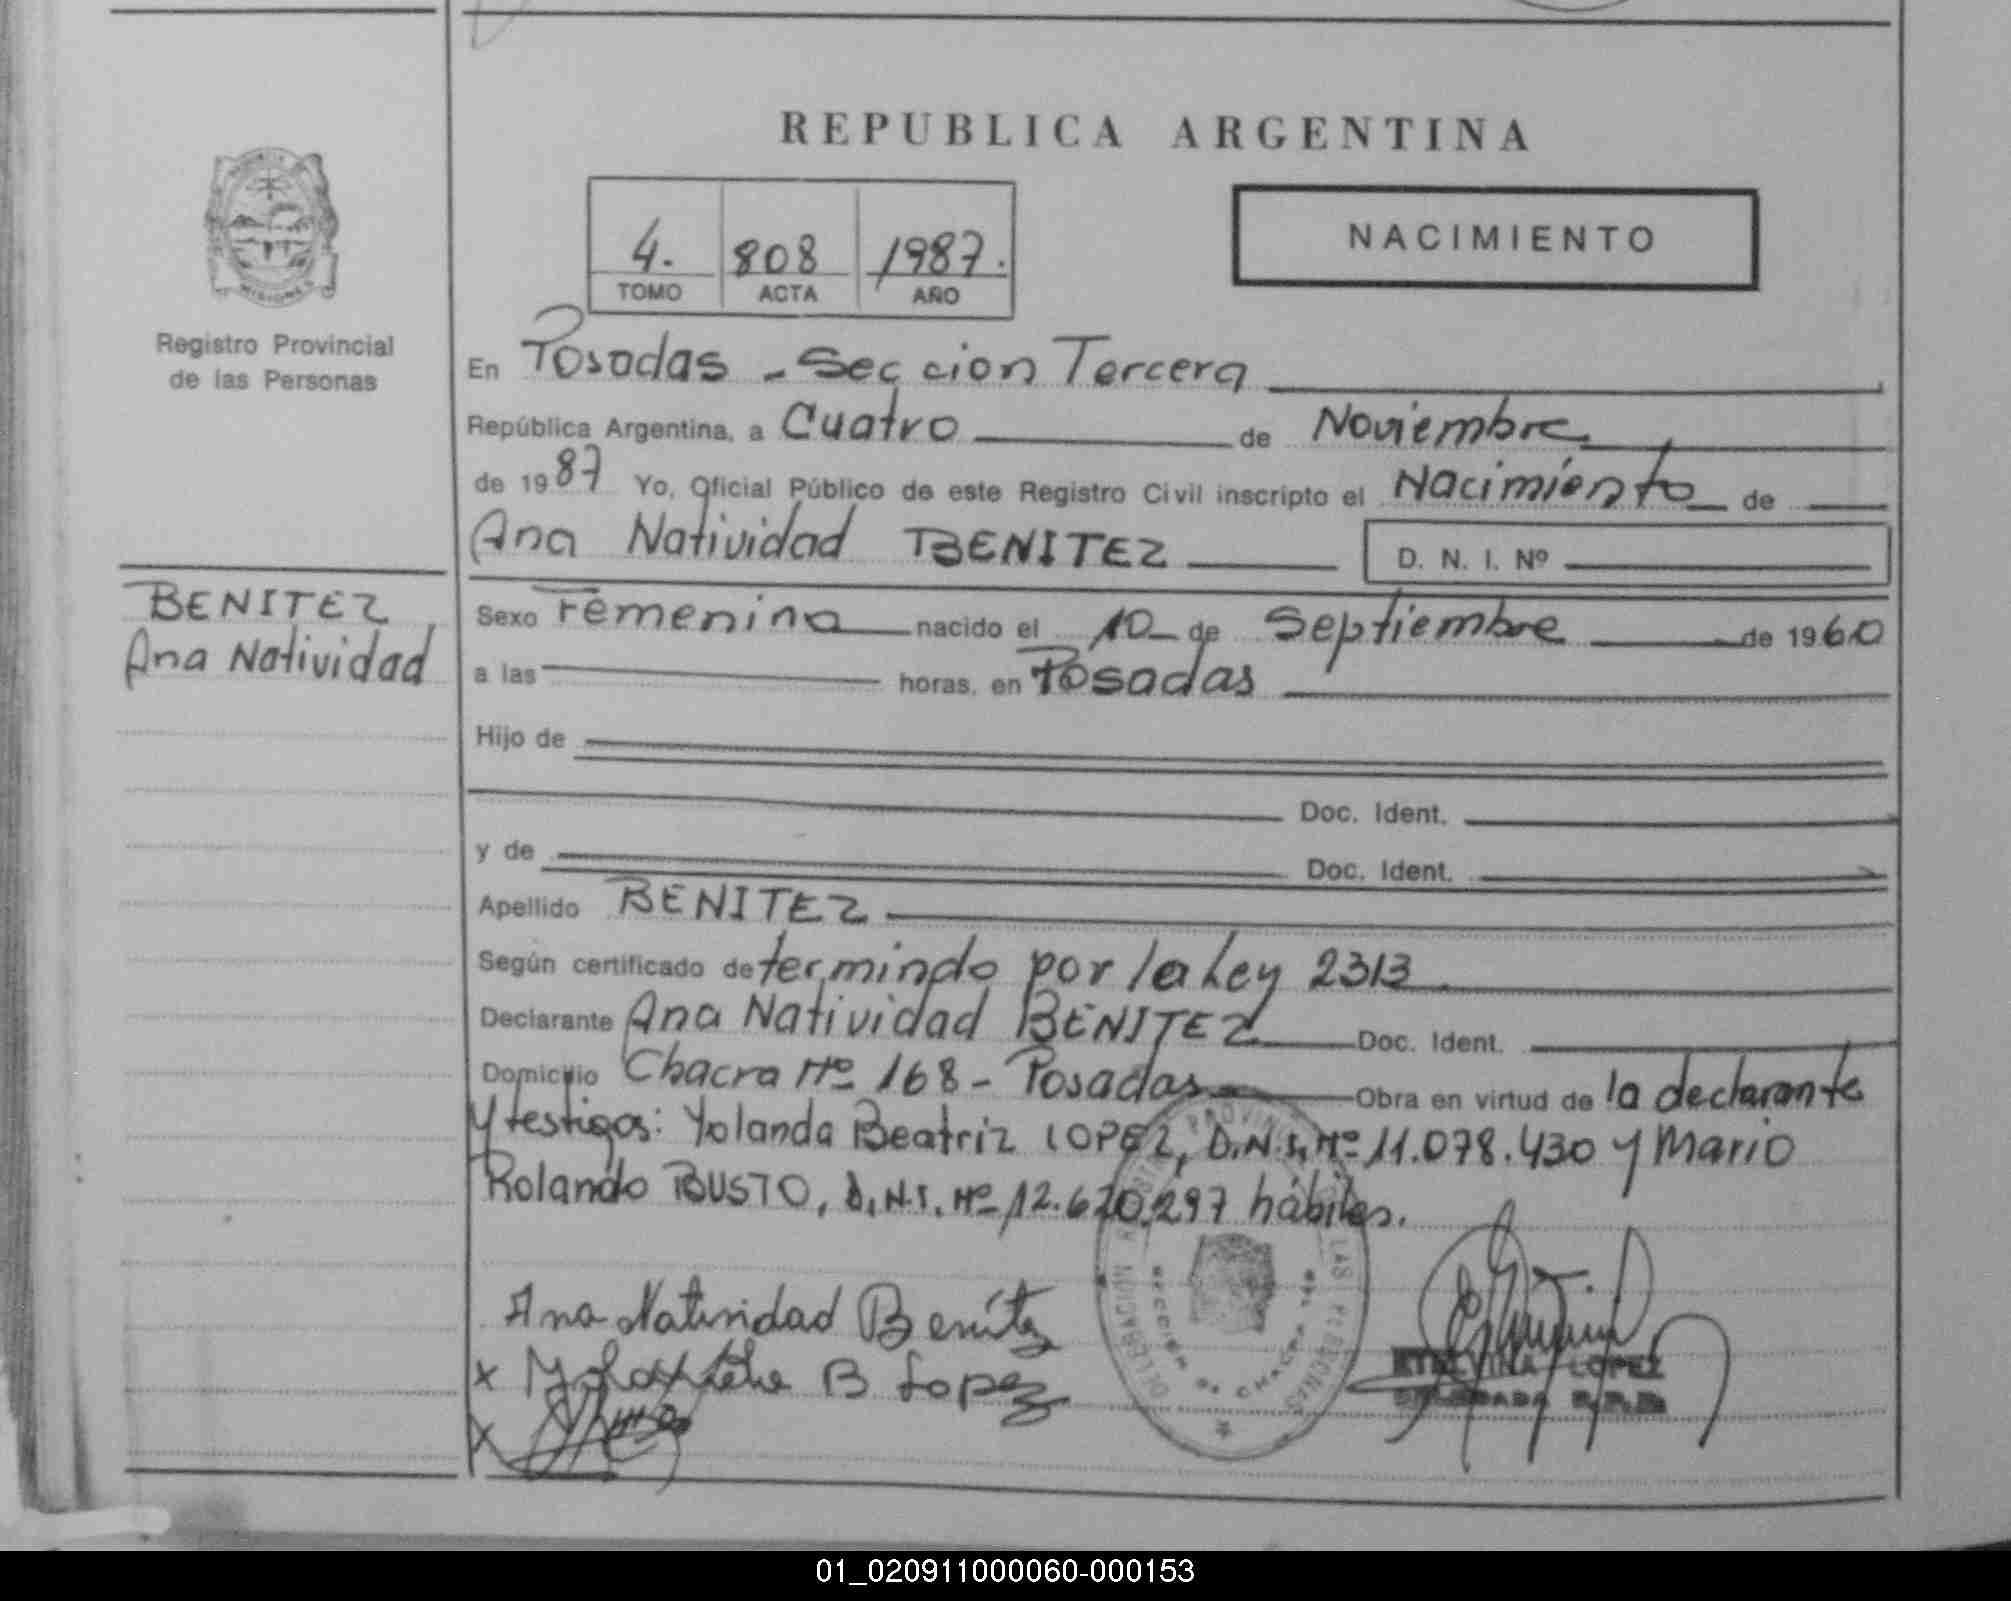 REPUBLICA ARGENTINA
4. 808 1987.
TOMO ACTA AÑO
NACIMIENTO
MISIONES
Registro Provincial
de las Personas
En Posadas - Seccion Tercera
República Argentina, a Cuatro de Noviembre
de 1987 Yo, Oficial Público de este Registro Civil inscripto el Nacimiento de
Ana Natividad BENITEZ D. N. I. Nº
BENITEZ
Ana Natividad
Sexo Femenino nacido el 10 de Septiembre de 1960
a las horas, en Posadas
Hijo de
Doc. Ident.
y de Doc. Ident.
Apellido BENITEZ
Según certificado determindo por la Ley 2313
Declarante Ana Natividad BENITEZ Doc. Ident.
Domicilio Chacra Nº 168 - Posadas Obra en virtud de la declarante
y testigos: Yolanda Beatriz LOPEZ, D.N.I. Nº 11.078.430 y Mario
Rolando BUSTO, D.N.I. Nº 12.620.297 hábiles.
Ana Natividad Benítez
x B Lopez
x
ETELVINA LOPEZ
DELEGADA R.P.P.
DELEGACION REGISTRO PROVINCIAL LAS PERSONAS
SECCION CHACRA
01_020911000060-000153